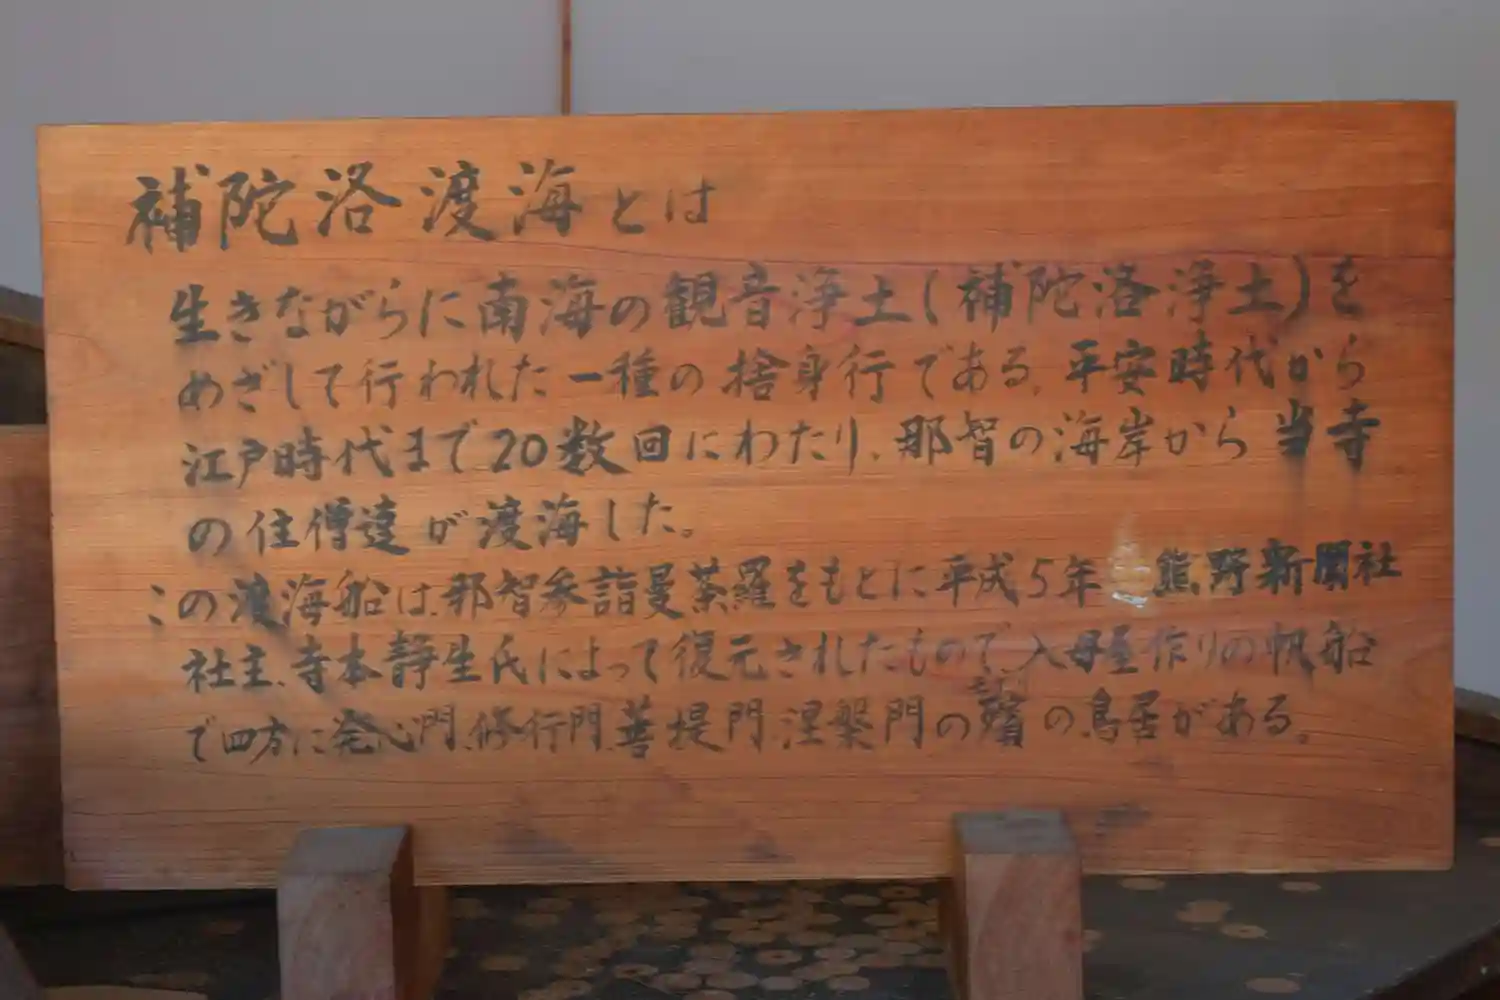 補陀洛渡海とは
生きながらに南海の観音浄土(補陀洛浄土)を
めざして行われた一種の捨身行である。平安時代から
江戸時代まで20数回にわたり、那智の海岸から当寺
の住僧達が渡海した。
この渡海船は、那智参詣曼荼羅をもとに平成5年 熊野新聞社
社主、寺本静生氏によって復元されたもので、入母屋作りの帆船
で四方に発心門、修行門、菩提門、涅槃門の殯の鳥居がある。